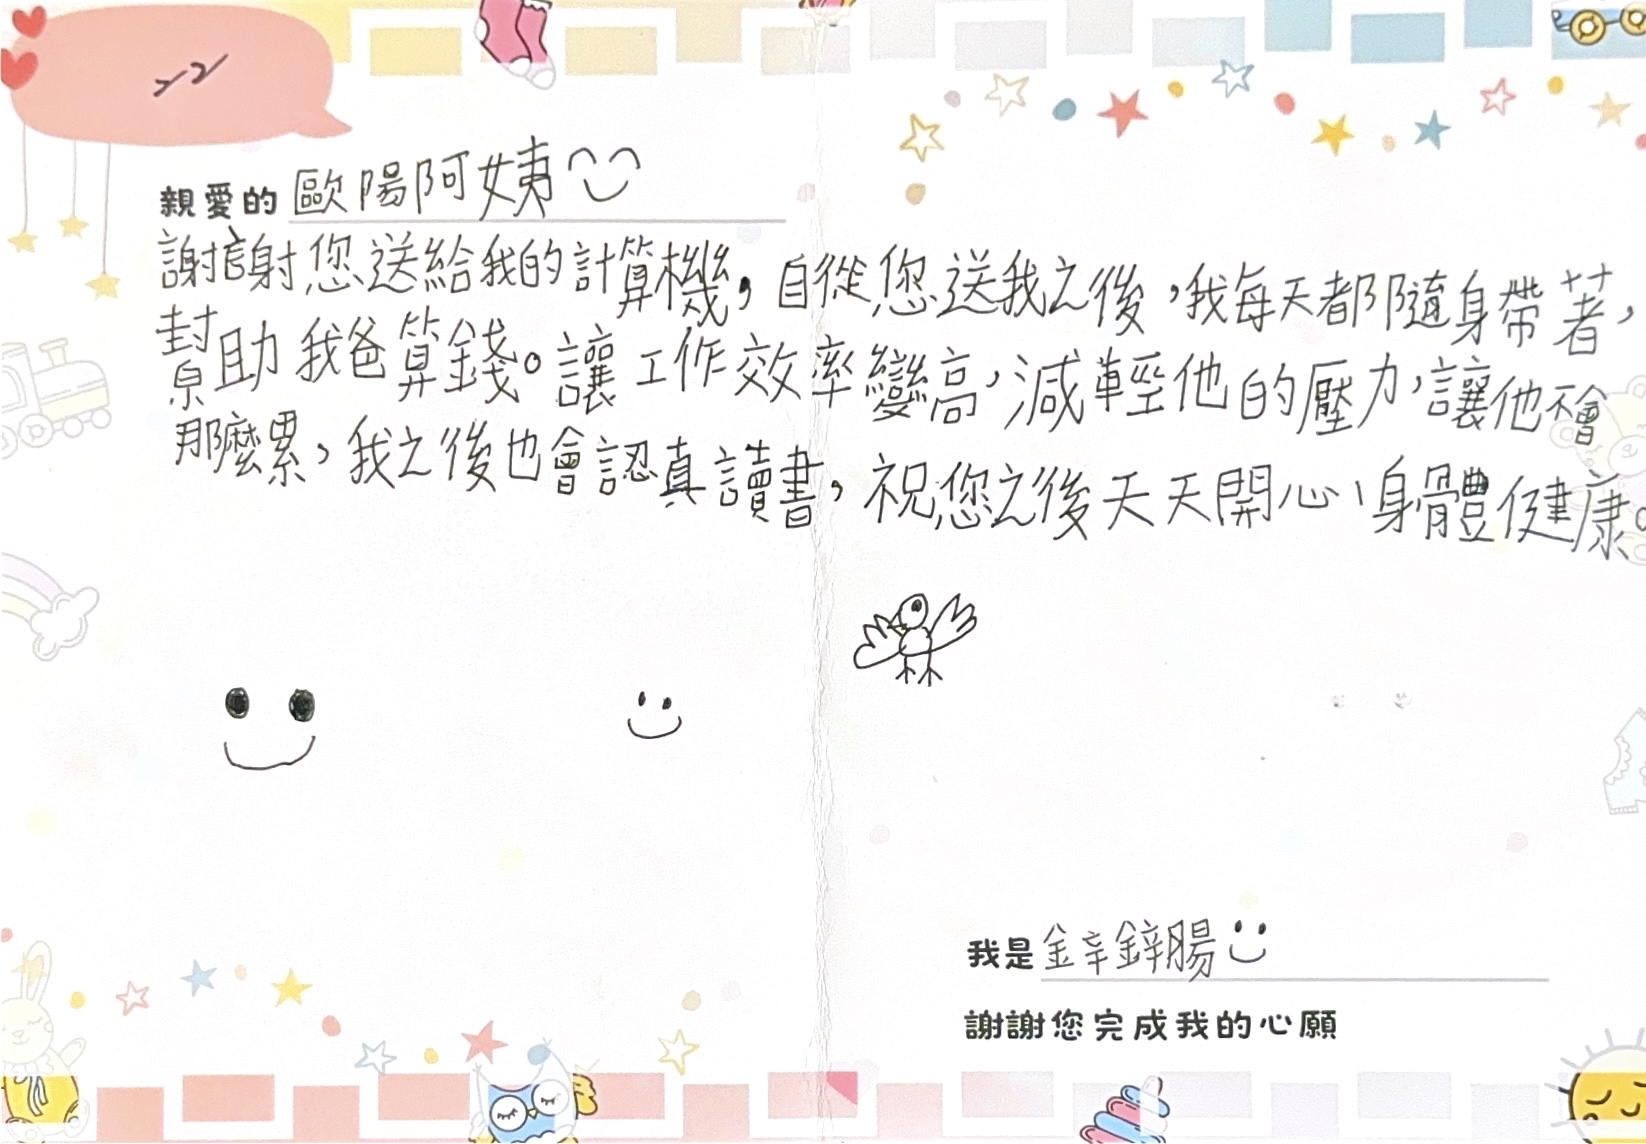 親愛的 歐陽阿姨
謝謝您送給我的計算機，自從您送我之後，我每天都隨身帶著，
幫助我爸算錢。讓工作效率變高，減輕他的壓力，讓他不會
那麼累，我之後也會認真讀書，祝您之後天天開心、身體健康。
我是 鋅鋅腸
謝謝您完成我的心願